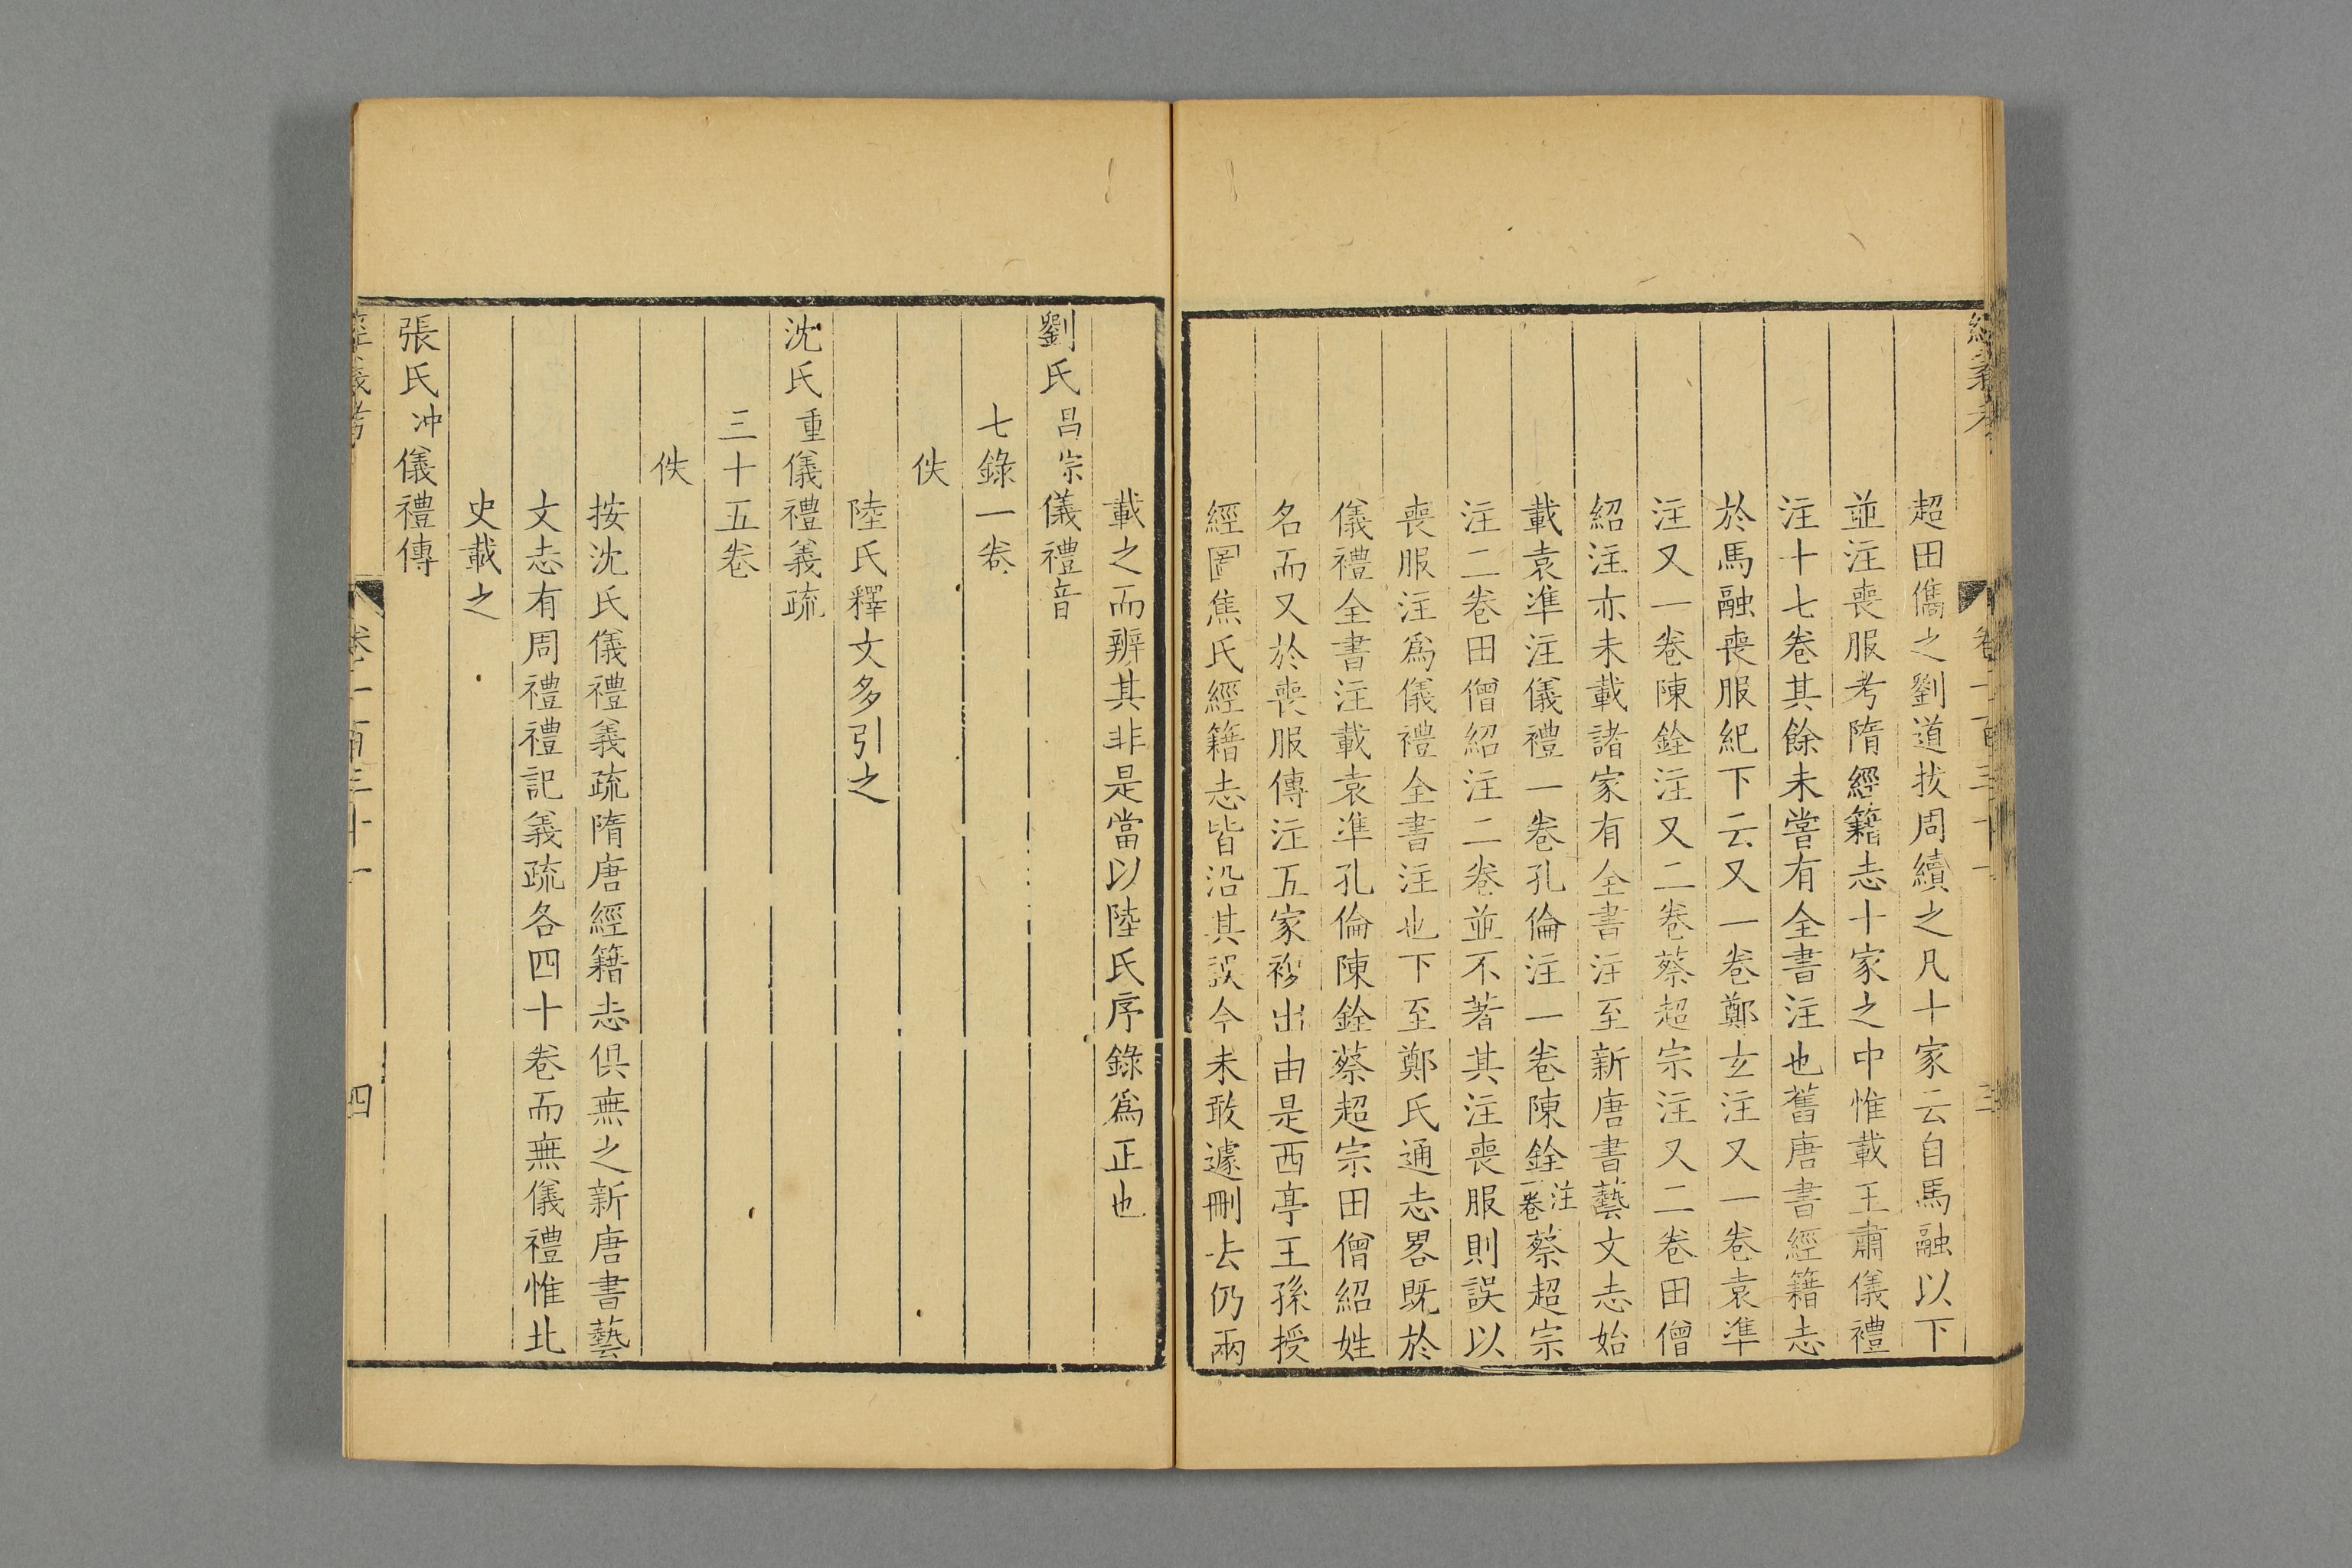 超田儁之劉道拔周續之凡十家云自馬融以下
並注喪服考隋經籍志十家之中惟載王肅儀禮
注十七卷其餘未嘗有全書注也舊唐書經籍志
於馬融喪服紀下云又一卷鄭玄注又一卷袁準
注又一卷陳銓注又二卷蔡超宗注又二卷田僧
紹注亦未載諸家有全書注至新唐書藝文志始
載袁準注儀禮一卷孔倫注一卷陳銓注一卷蔡超宗
注二卷田僧紹注二卷並不著其注喪服則誤以
喪服注爲儀禮全書注也下至鄭氏通志畧既於
儀禮全書注載袁準孔倫陳銓蔡超宗田僧紹姓
名而又於喪服傳注五家複出由是西亭王孫授
經圖焦氏經籍志皆沿其誤今未敢遽刪去仍兩
載之而辨其非是當以陸氏序錄爲正也
劉氏昌宗儀禮音
七錄一卷
佚
陸氏釋文多引之
沈氏重儀禮義疏
三十五卷
佚
按沈氏儀禮義疏隋唐經籍志俱無之新唐書藝
文志有周禮禮記義疏各四十卷而無儀禮惟北
史載之
張氏冲儀禮傳
經義考 卷一百三十一 四